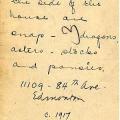 the side of this
house are
snap-dragons,
asters - stocks
and pansies.
11109 - 84th Ave.
Edmonton
c. 1917